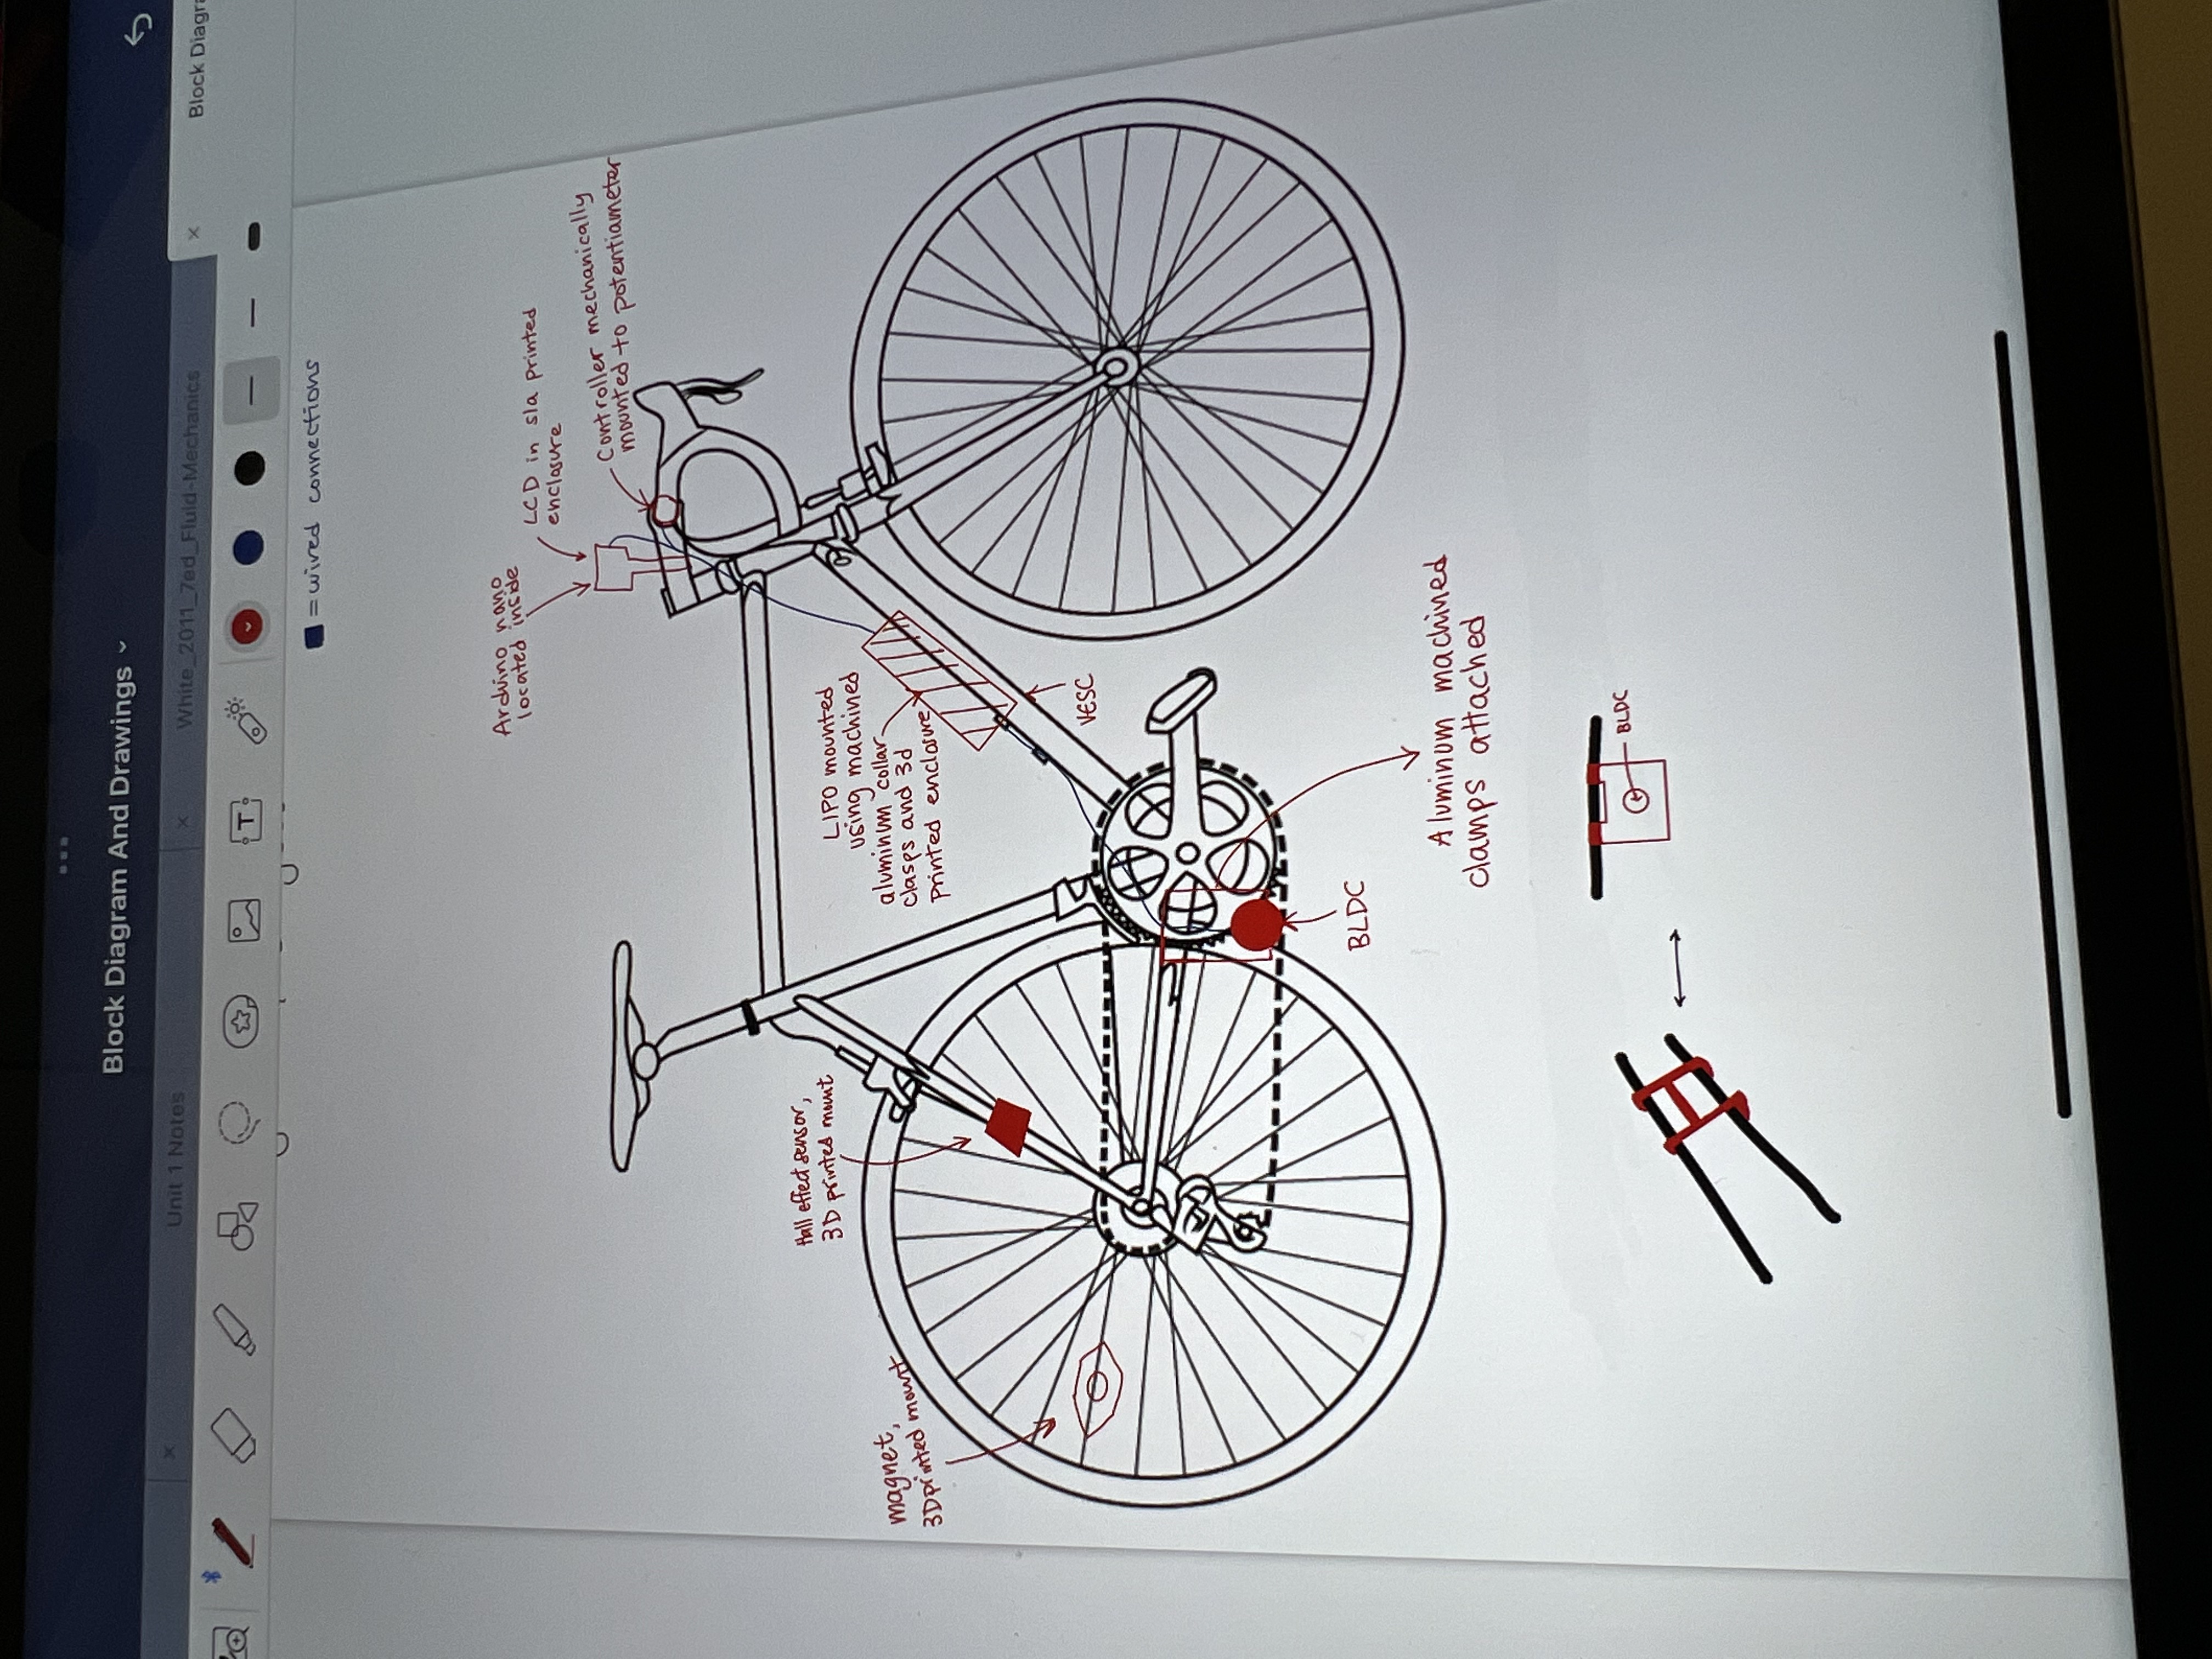 Block Diagram And Drawings
Unit 1 Notes
White_2011_7ed_Fluid-Mechanics
Block Diagra
T
= wired connections
Arduino nano
located inside
LCD in sla printed
enclosure
Controller mechanically
mounted to potentiameter
Hall effect sensor,
3D printed mount
LIPO mounted
using machined
aluminum collar
clasps and 3d
printed enclosure
magnet,
3D printed mount
VESC
BLDC
Aluminum machined
clamps attached
BLDC